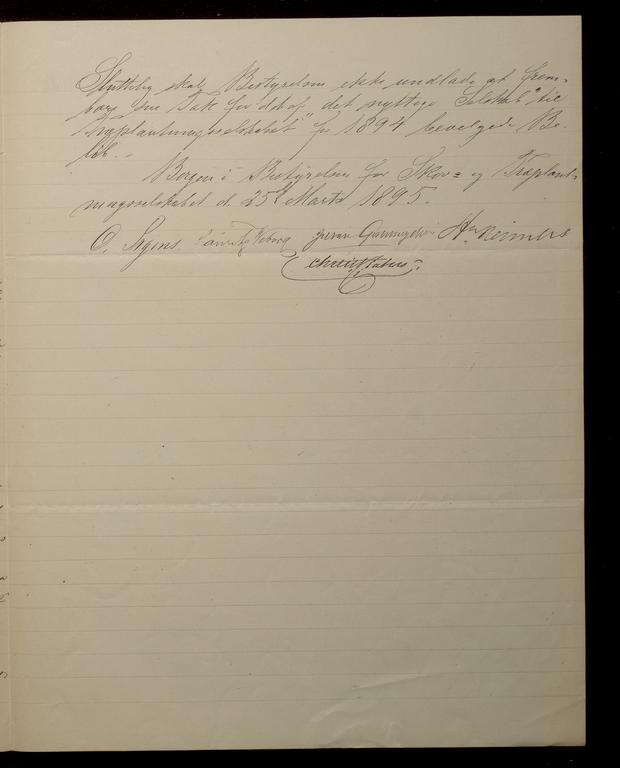 Sluttelig skal Bestyrelsen ikke undlade at frem-
bære sin Tak for det af det nyttige Selskab til
"Træplantningsselskabet" for 1894 bevilgede Be-
løb. -
Bergen i Bestyrelsen for Skov= og Træplant-
ningsselskabet d. 25de Marts 1895.
O. Irgens.